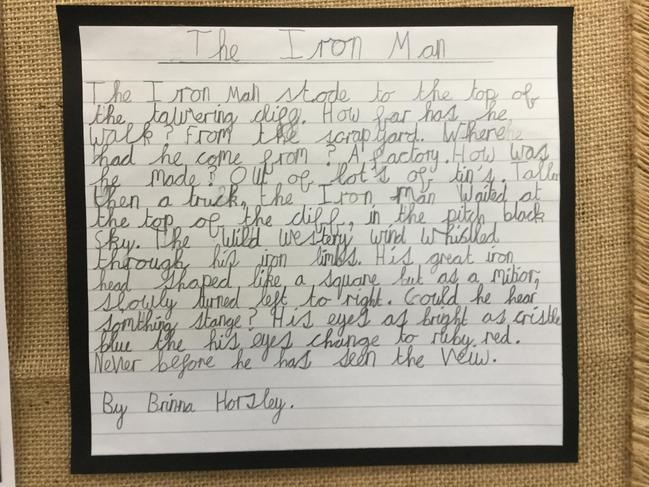 The Iron Man
The Iron Man stode to the top of
the tawering cliff. How far has he
walk? From the scrapyard. Where
had he come from? A factory. How was
he made? Out of lot's of tin's. Taller
then a truck, the Iron man waited at
the top of the cliff, in the pitch black
sky. The wild westery wind whistled
through his iron limbs. His great iron
head shaped like a square but as a
slowly turned left to right. Could he hear
somthing stange? His eyes as bright as cristle
blue the his eyes change to ruby red.
Never before he has seen the
By Brinna Horsley.